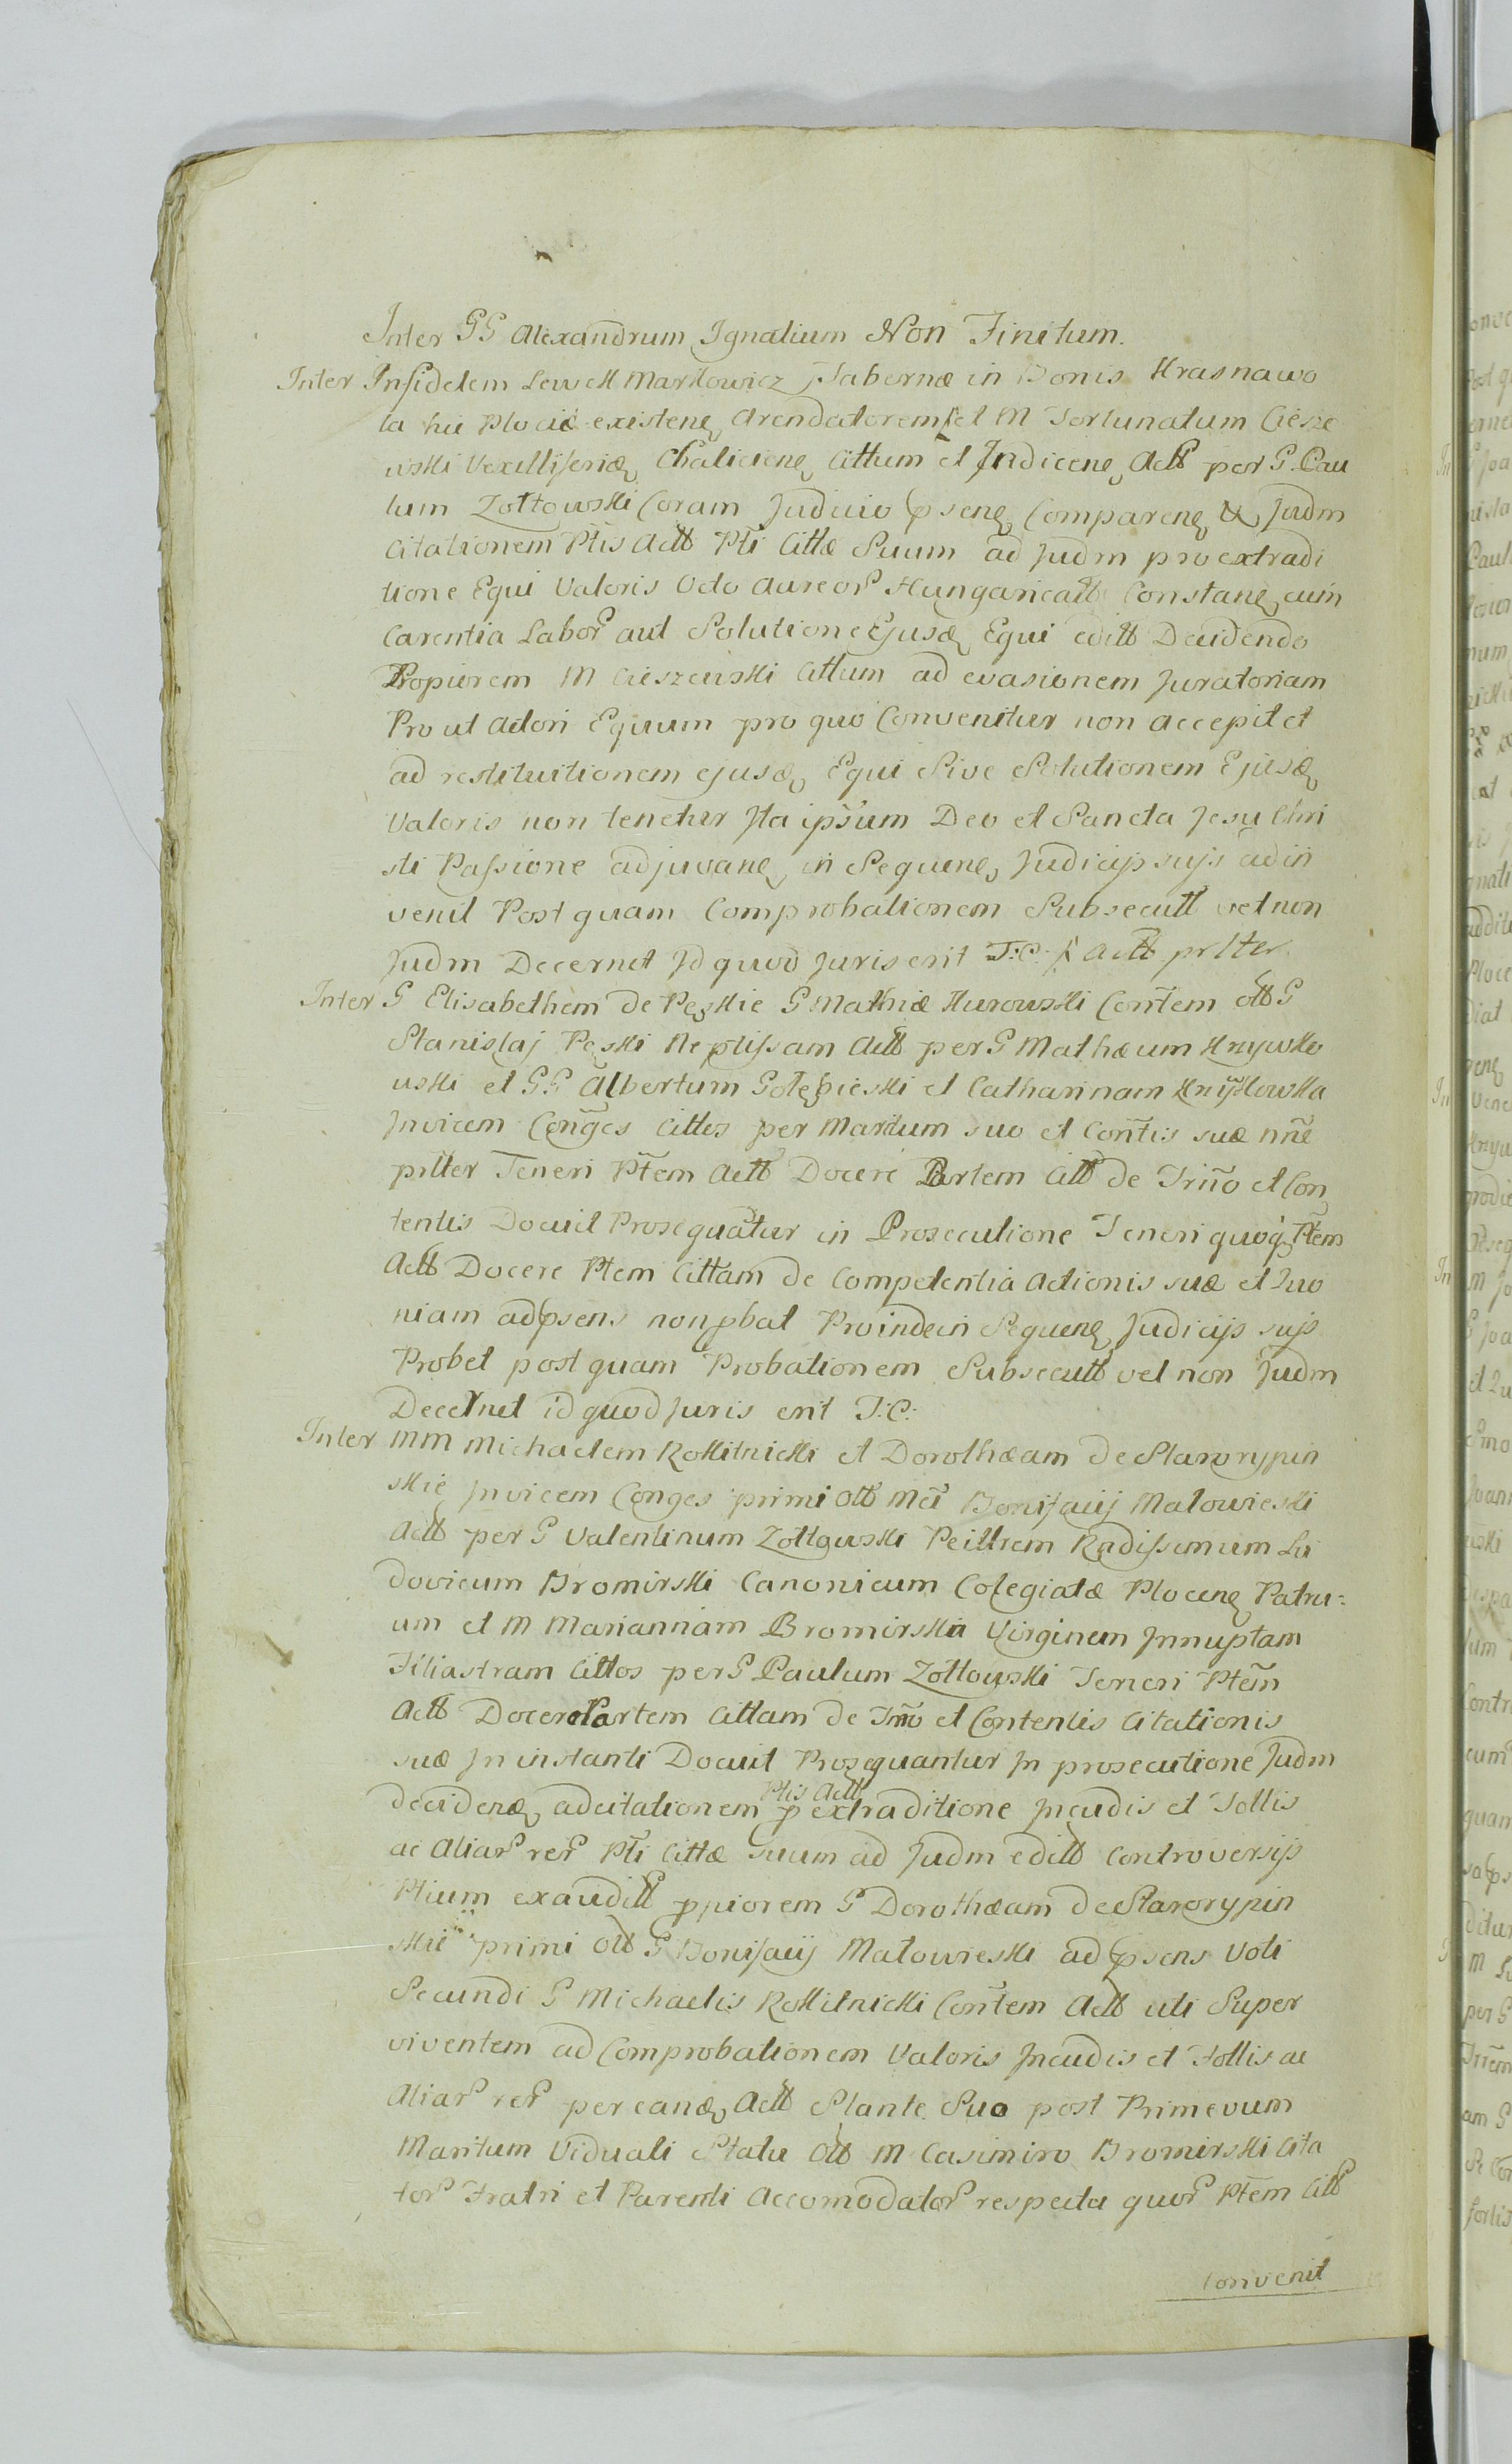 Inter GG Alexandrum Ignatium Non Finitum.
Inter Infidelem Lewek Markowicz Tabernæ in Bonis Krasnawo
la hic existen Arendatorem et M Fortunatum Ciesze
wski Vexilliferidæ Chalicien Cittum et Indicen Actt per G. Pau
lum Zołtowski Coram Judicio psen Comparen & Judm
Citationem Ptis Actt Pti Cittæ Suum ad Judm pro extradi
tione Equi Valoris Octo Aureor Hungaricatt Constan cum
Carentia Labor aut Solutione Ejusd Equi editt Decidendo
Propiorem M Cieszewski Cittum ad evasionem Juratoriam
Prout Actori Equum pro quo Convenitur non accepit et
ad restituitionem ejusd Equi Sive Solutionem Ejusd
Valoris non tenetur Ita ipsum Deo et Sancta Jesu Chri
sti Passione adjuvan in Sequen Judicijs sujs adin
venit Post quam Comprobationem Subsecutt vel non
Judm Decernet Id quod Juris erit T:C: Actt prlter
Inter G Elisabethem de Peskie G Mathiæ Kurowski Contem ott G
Stanislaj Peski Neptissam Actt per G Mathæum Krzywko
wski et GG Albertum Golębieski et Catharinam
Invicem Conges Cittos per Maritum suo et Contis suæ nne
prlter Teneri Ptem Actt Docere Partem Citt de Trmo et Con
tentis Docuit Prosequatur in Prosecutione Teneri quoq Ptem
Actt Docere Ptem Cittam de Competentia Actionis suæ et Quo
niam adpsens non pbat Proinde in Sequen Judicijs sujs
Probet post quam Probationem Subsecutt vel non Judm
Decernet id quod Juris erit T:C:
Inter MM Michaelem Rokitnicki et Dorothæam de Starorypin
skie Invicem Conges primi ott Mci Bonifacij Małowieski
Actt per G Valentinum Zołtowski Peittrem Rndissimum Lu
dovicum Bromirski Canonicum Colegiatæ Plocen Patru:
um et M Mariannam Bromirska Virginem Innuptam
Filiastram Cittos per G Paulum Zołtowski Teneri Ptem
Actt Docere Partem Cittam de Trmo et Contentis Citationis
suæ In instanti Docuit Prosequantur In prosecutione Judm
deciden ad citationem Ptis Actt p extraditione Incudis et Follis
ac Aliar rer Pti Cittæ suum ad Judm editt Controversijs
Ptium exauditt ppiorem G Dorothæam de Starorypin
skie primi ott G Bonifacij Małowieski ad psens Voti
Secundi G Michaelis Rokitnicki Contem Actt uti Super
viventem ad Comprobationem Valoris Incudis et Follis ac
Aliar rer per eand Actt Stante Suo post Primevum
Maritum Viduali Statu ott M Casimiro Bromirski Cita
tor Fratri et Parenti Accomodator respectu quor Ptem Citt
Convenit